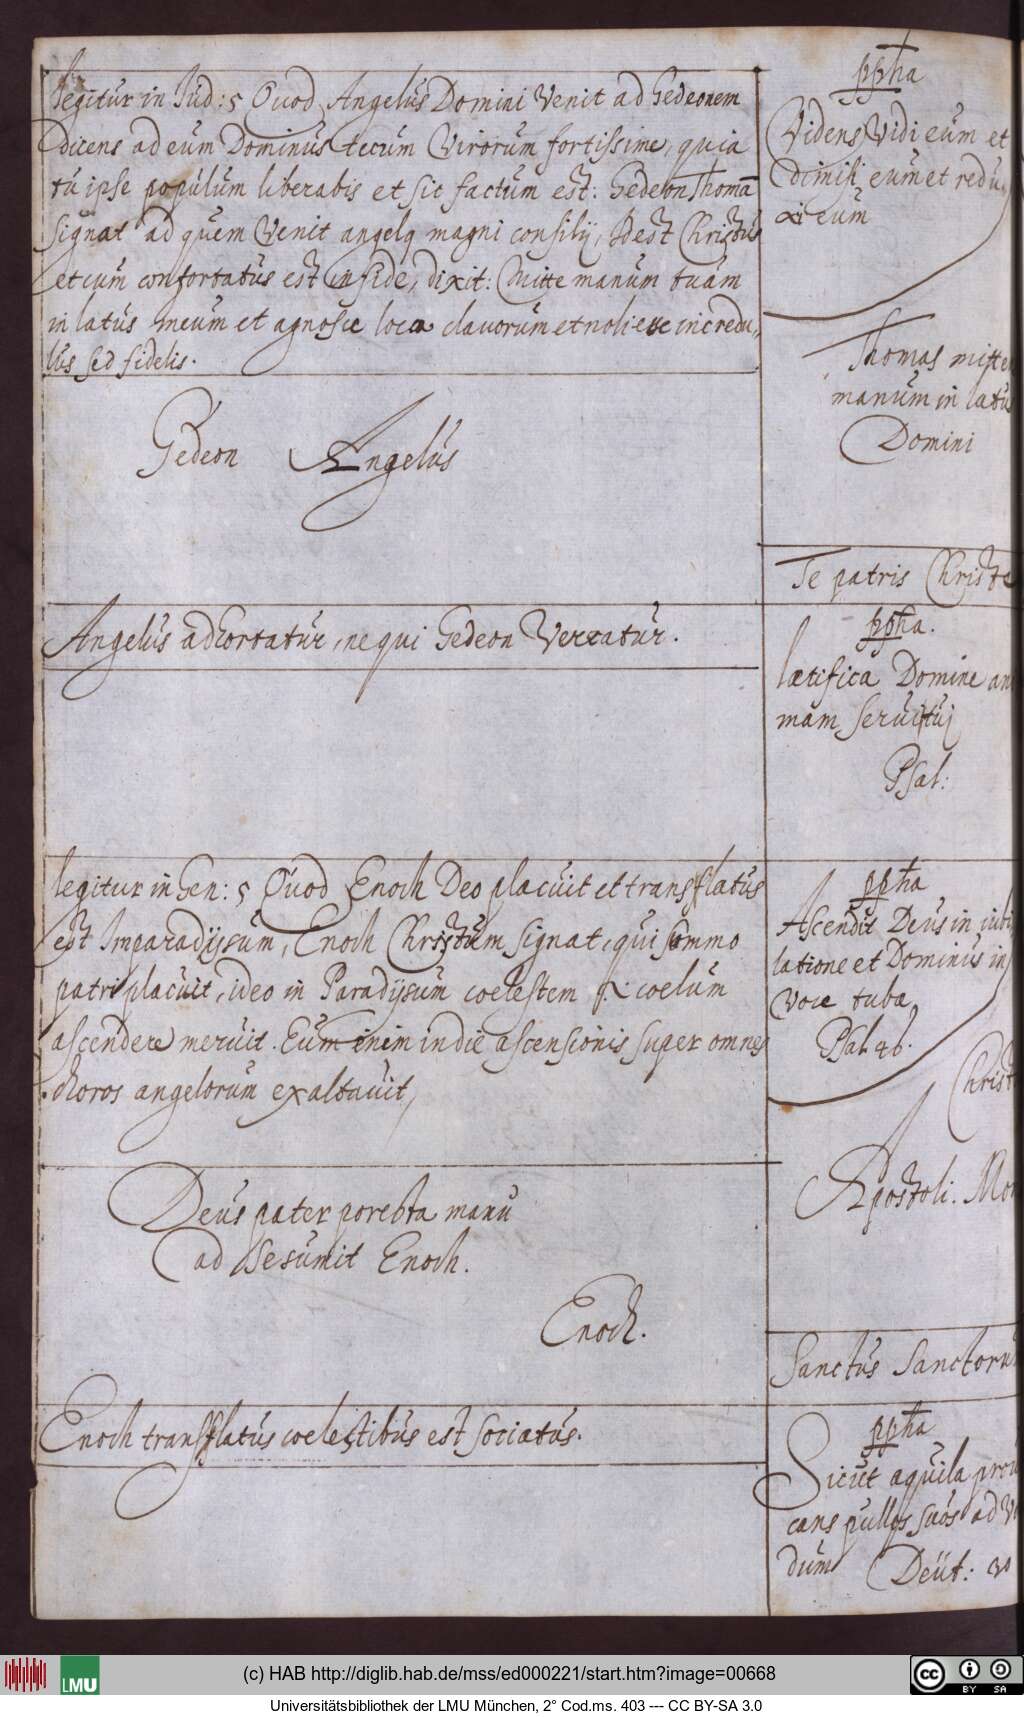 legitur in Jud: 5 Quod Angelus Domini Venit ad Gedeonem
dicens ad eum Dominus tecum Virorum fortissime, quia
tu ipse populum liberabis et sic factum est: Gedeon Thomā
signat ad quem Venit angelq magni consilij, Idest Christus
et cum confortatus est in fide, dixit: Mitte manum tuam
in latus meum et agnosce loca clavorum et noli esse incredu„
lus sed fidelis.
Gedeon Angelus
Angelus adhortatur, ne qui Gedeon Verxatur.
legitur in Gen: 5 Quod Enoch Deo placuit et translatus
est Imparadijsum, Enoch Christum signat, qui summo
patri placuit, ideo in Paradijsum coelestem coelum
ascendere meruit. Eum enim in die ascensionis super omnes
choros angelorum exaltavit,
Deus pater porecta manu
ad se sumit Enoch.
Enoch.
Enoch translatus coelestibus est sociatus.
ppha
Videns Vidi eum et
dimisi eum et redu„
xi eum
Thomas mitte
manum in latus
Domini
Te patris Christe
ppha.
lætifica Domine ani
mam servi tuj
Psal:
ppha
Ascendit Deus in iubi
latione et Dominus in
Voce tubæ
Psal 46.
Christ
Apostoli. Mon
Sanctus Sanctoru
ppha
Sicut aquila provo
cans pullos suos ad Vo
dum Deüt:
(c) HAB http://diglib.hab.de/mss/ed000221/start.htm?image=00668
LMU
cc BY SA
Universitätsbibliothek der LMU München, 2° Cod.ms. 403 --- CC BY-SA 3.0